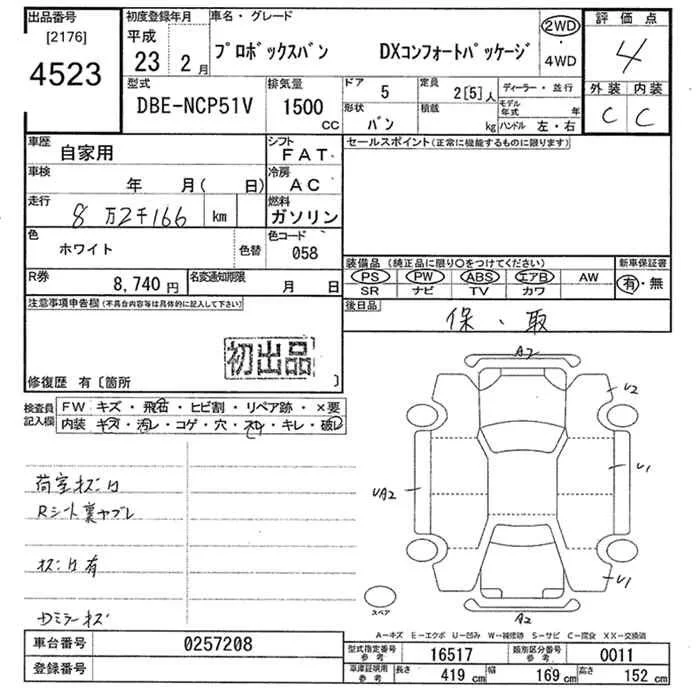 出品番号
[2176]
4523
初度登録年月
平成
23 2月
車名・グレード
プロボックスバン DXコンフォートパッケージ
2WD
・
4WD
評価点
4
外装 内装
C C
型式
DBE-NCP51V
排気量
1500
cc
ドア 5
定員 2[5]人
ディーラー・並行
モデル年式 年
形状 バン
積載 kg
ハンドル 左・右
車歴
自家用
シフト
FAT
セールスポイント(正常に機能するものに限ります)
車検
年 月( 日)
冷房
AC
走行
8万2千166 km
燃料
ガソリン
色
ホワイト
色替
色コード
058
R券
8,740円
名変通知期限
月 日
装備品(純正品に限り○をつけてください)
新車保証書
PS PW ABS エアB AW
SR ナビ TV カワ
有・無
注意事項申告欄(不具合内容等は具体的に記入して下さい)
後日品
保・取
初出品
修復歴 有〔箇所 〕
検査員記入欄
FW キズ・飛石・ヒビ割・リペア跡・×要
内装 キズ・汚レ・コゲ・穴・スレ・キレ・破レ
荷室キズ凹
Rシート裏ヤブレ
キズ凹有
Dミラーキズ
A2
U2
UA2
U1
U1
A2
スペア
A-キズ E-エクボ U-凹み W-補修跡 S-サビ C-腐食 XX-交換済
車台番号
0257208
登録番号
型式指定番号
参考
16517
類別区分番号
参考
0011
車庫証明用
参考
長さ 419 cm
幅 169 cm
高さ 152 cm